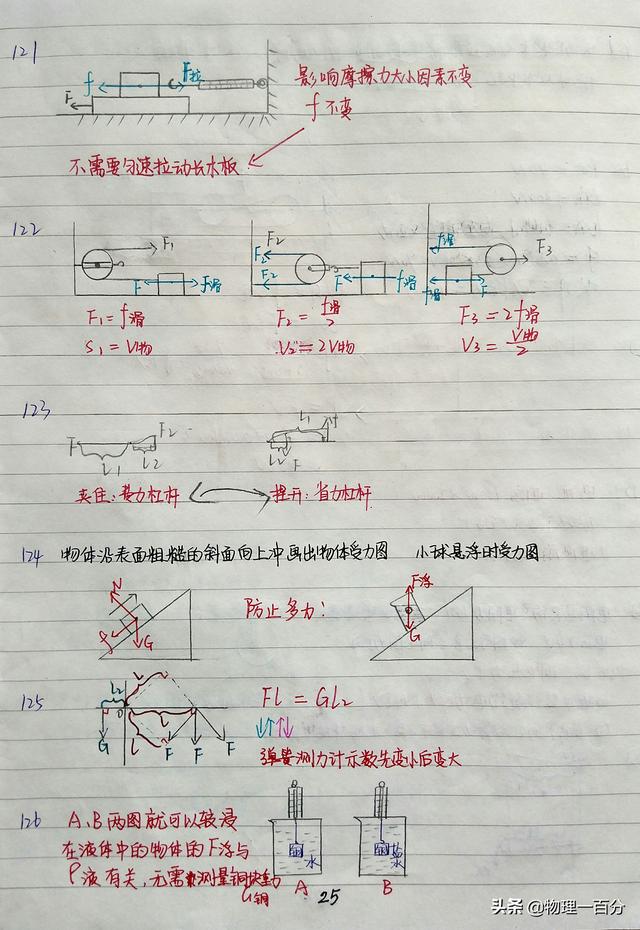 121
f
F拉
F
影响摩擦力大小因素不变
f 不变
不需要匀速拉动长木板
122
F₁
F
f滑
F₂
F₂
F₂
F
f滑
f滑
F₃
f滑
F
F₁=f滑
F₂=f滑/2
F₃=2f滑
S₁=V物
V₂=2V物
V₃=V物/2
123
F
F₂
L₁
L₂
L₁
f
L₂
F
夹住:费力杠杆
捏开:省力杠杆
124 物体沿表面粗糙的斜面向上冲画出物体受力图 小球悬浮时受力图
N
f
G
防止多力:
F浮
G
125
L₂
L
O
L
L
G
F
F
F
Fl=Gl₂
↓↑↑↓
弹簧测力计示数先变小后变大
126 A、B两图就可以较浸
在液体中的物体的F浮与
ρ液有关,无需测量铜块
G铜
铜
水
A
铜
盐水
B
25
头条 @物理一百分